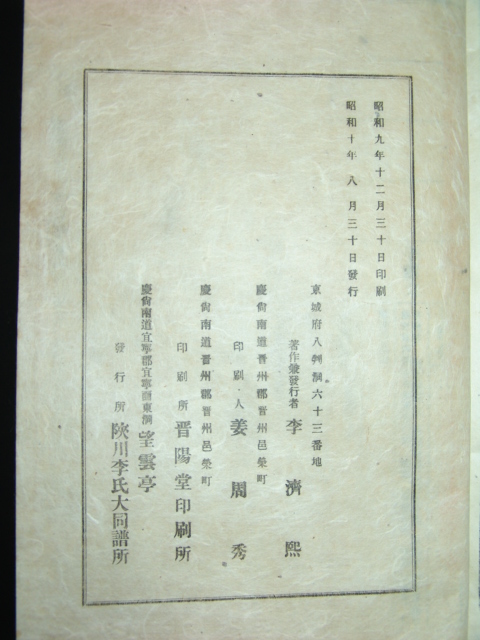 昭和九年十二月三十日印刷
昭和十年八月三十日發行
京城府八判洞六十三番地
著作兼發行者 李濟熙
慶尙南道晋州郡晋州邑榮町
印刷人 姜周秀
慶尙南道晋州郡晋州邑榮町
印刷所 晋陽堂印刷所
慶尙南道宜寧郡宜寧面東洞 望雲亭
發行所 陜川李氏大同譜所